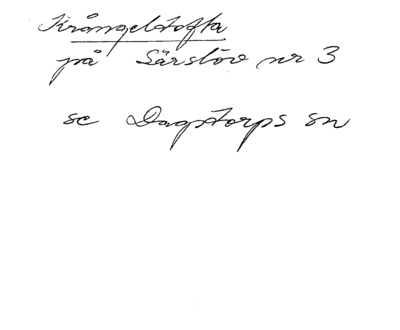 Krångeltofta
på Särslöv nr 3
se Dagstorps sn